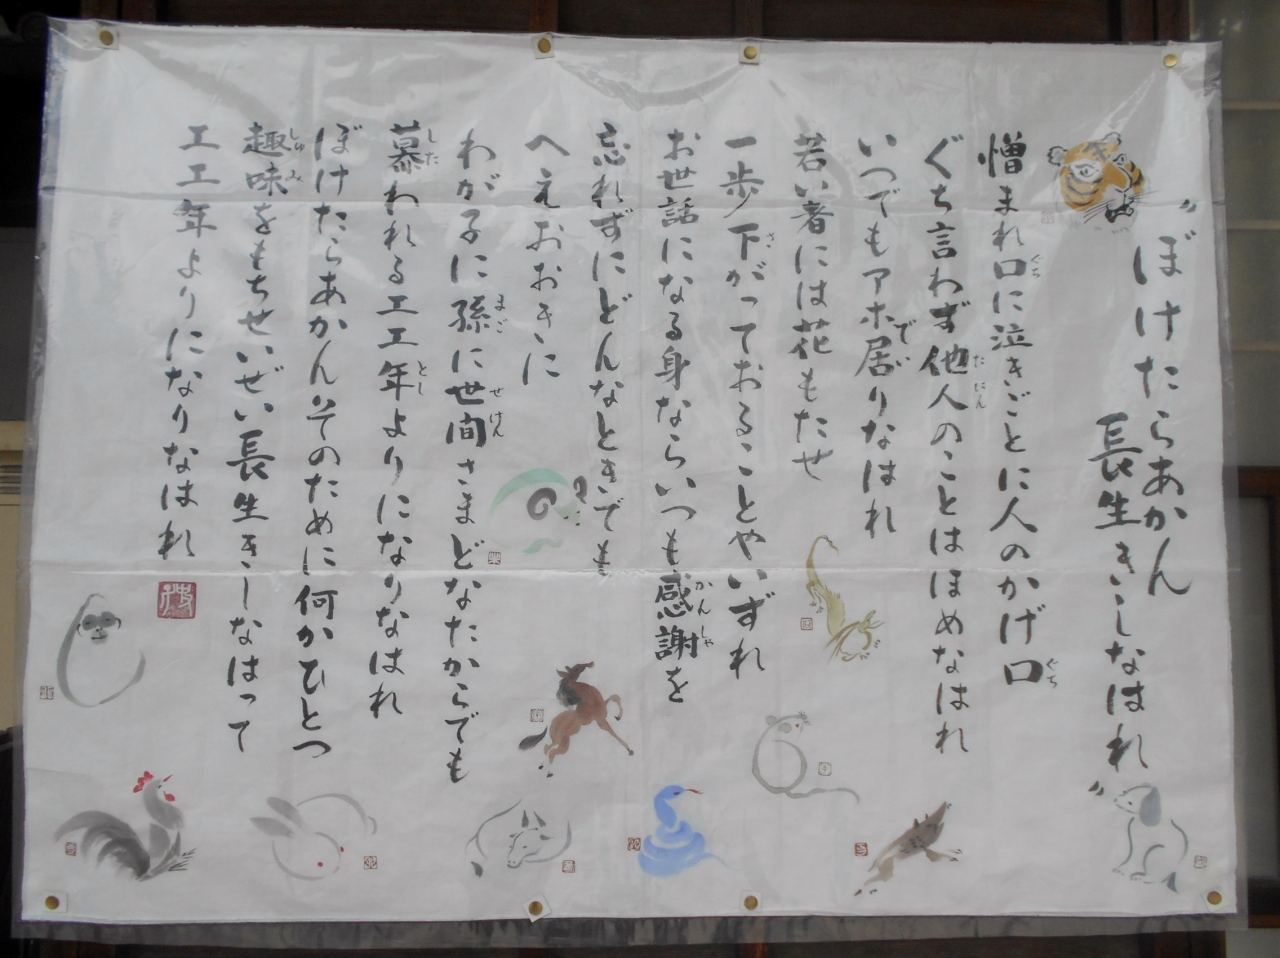 〝ぼけたらあかん
長生きしなはれ〟
憎まれ口に泣きごとに人のかげ口
ぐち言わず他人のことはほめなはれ
いつでもアホで居りなはれ
若い者には花もたせ
一歩下がっておることやいずれ
お世話になる身ならいつも感謝を
忘れずにどんなときでも
へえおおきに
わが子に孫に世間さまどなたからでも
慕われるエエ年よりになりなはれ
ぼけたらあかんそのために何かひとつ
趣味をもちせいぜい長生きしなはって
エエ年よりになりなはれ